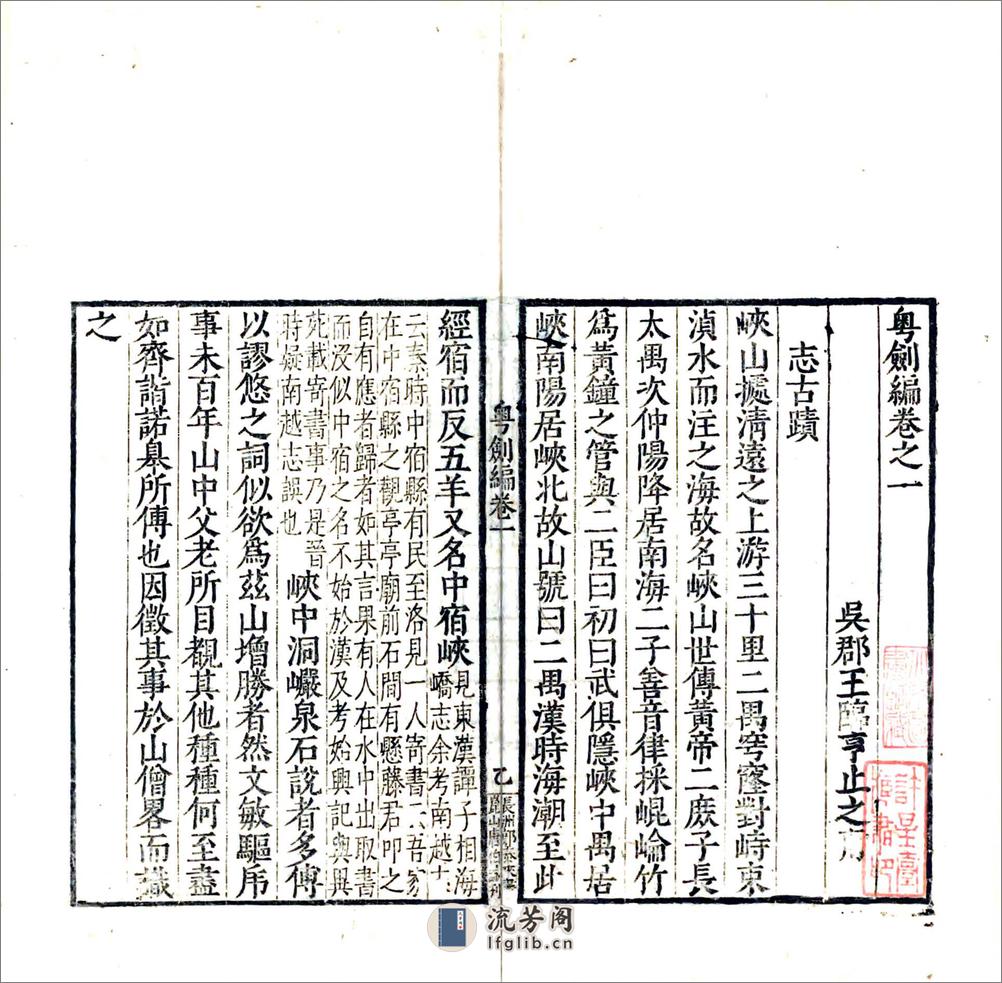 粤劍編卷之一
吳郡王臨亨止之甫
志古蹟
峽山據清遠之上游三十里二禺穹窿對峙束
湞水而注之海故名峽山世傳黃帝二庶子長
太禺次仲陽降居南海二子善音律採崐崘竹
爲黃鐘之管與二臣曰初曰武俱隱峽中禺居
峽南陽居峽北故山號曰二禺漢時海潮至此
粤劍編卷一
乙
經宿而反五羊又名中宿峽
見東漢譚子相海
嶠志余考南越志
云秦時中宿縣有民至洛見一人寄書云吾家
在中宿縣之觀亭亭廟前石間有懸藤君叩之
自有應者歸者如其言果有人在水中出取書
而沒似中宿之名不始於漢及考始興記與異
苑載寄書事乃是晉
時疑南越志誤也
峽中洞巘泉石說者多傅
以謬悠之詞似欲爲茲山增勝者然文敏驅虎
事未百年山中父老所目覩其他種種何至盡
如齊諧諾臯所傳也因徵其事於山僧畧而識
之
流芳阁
lfglib.cn